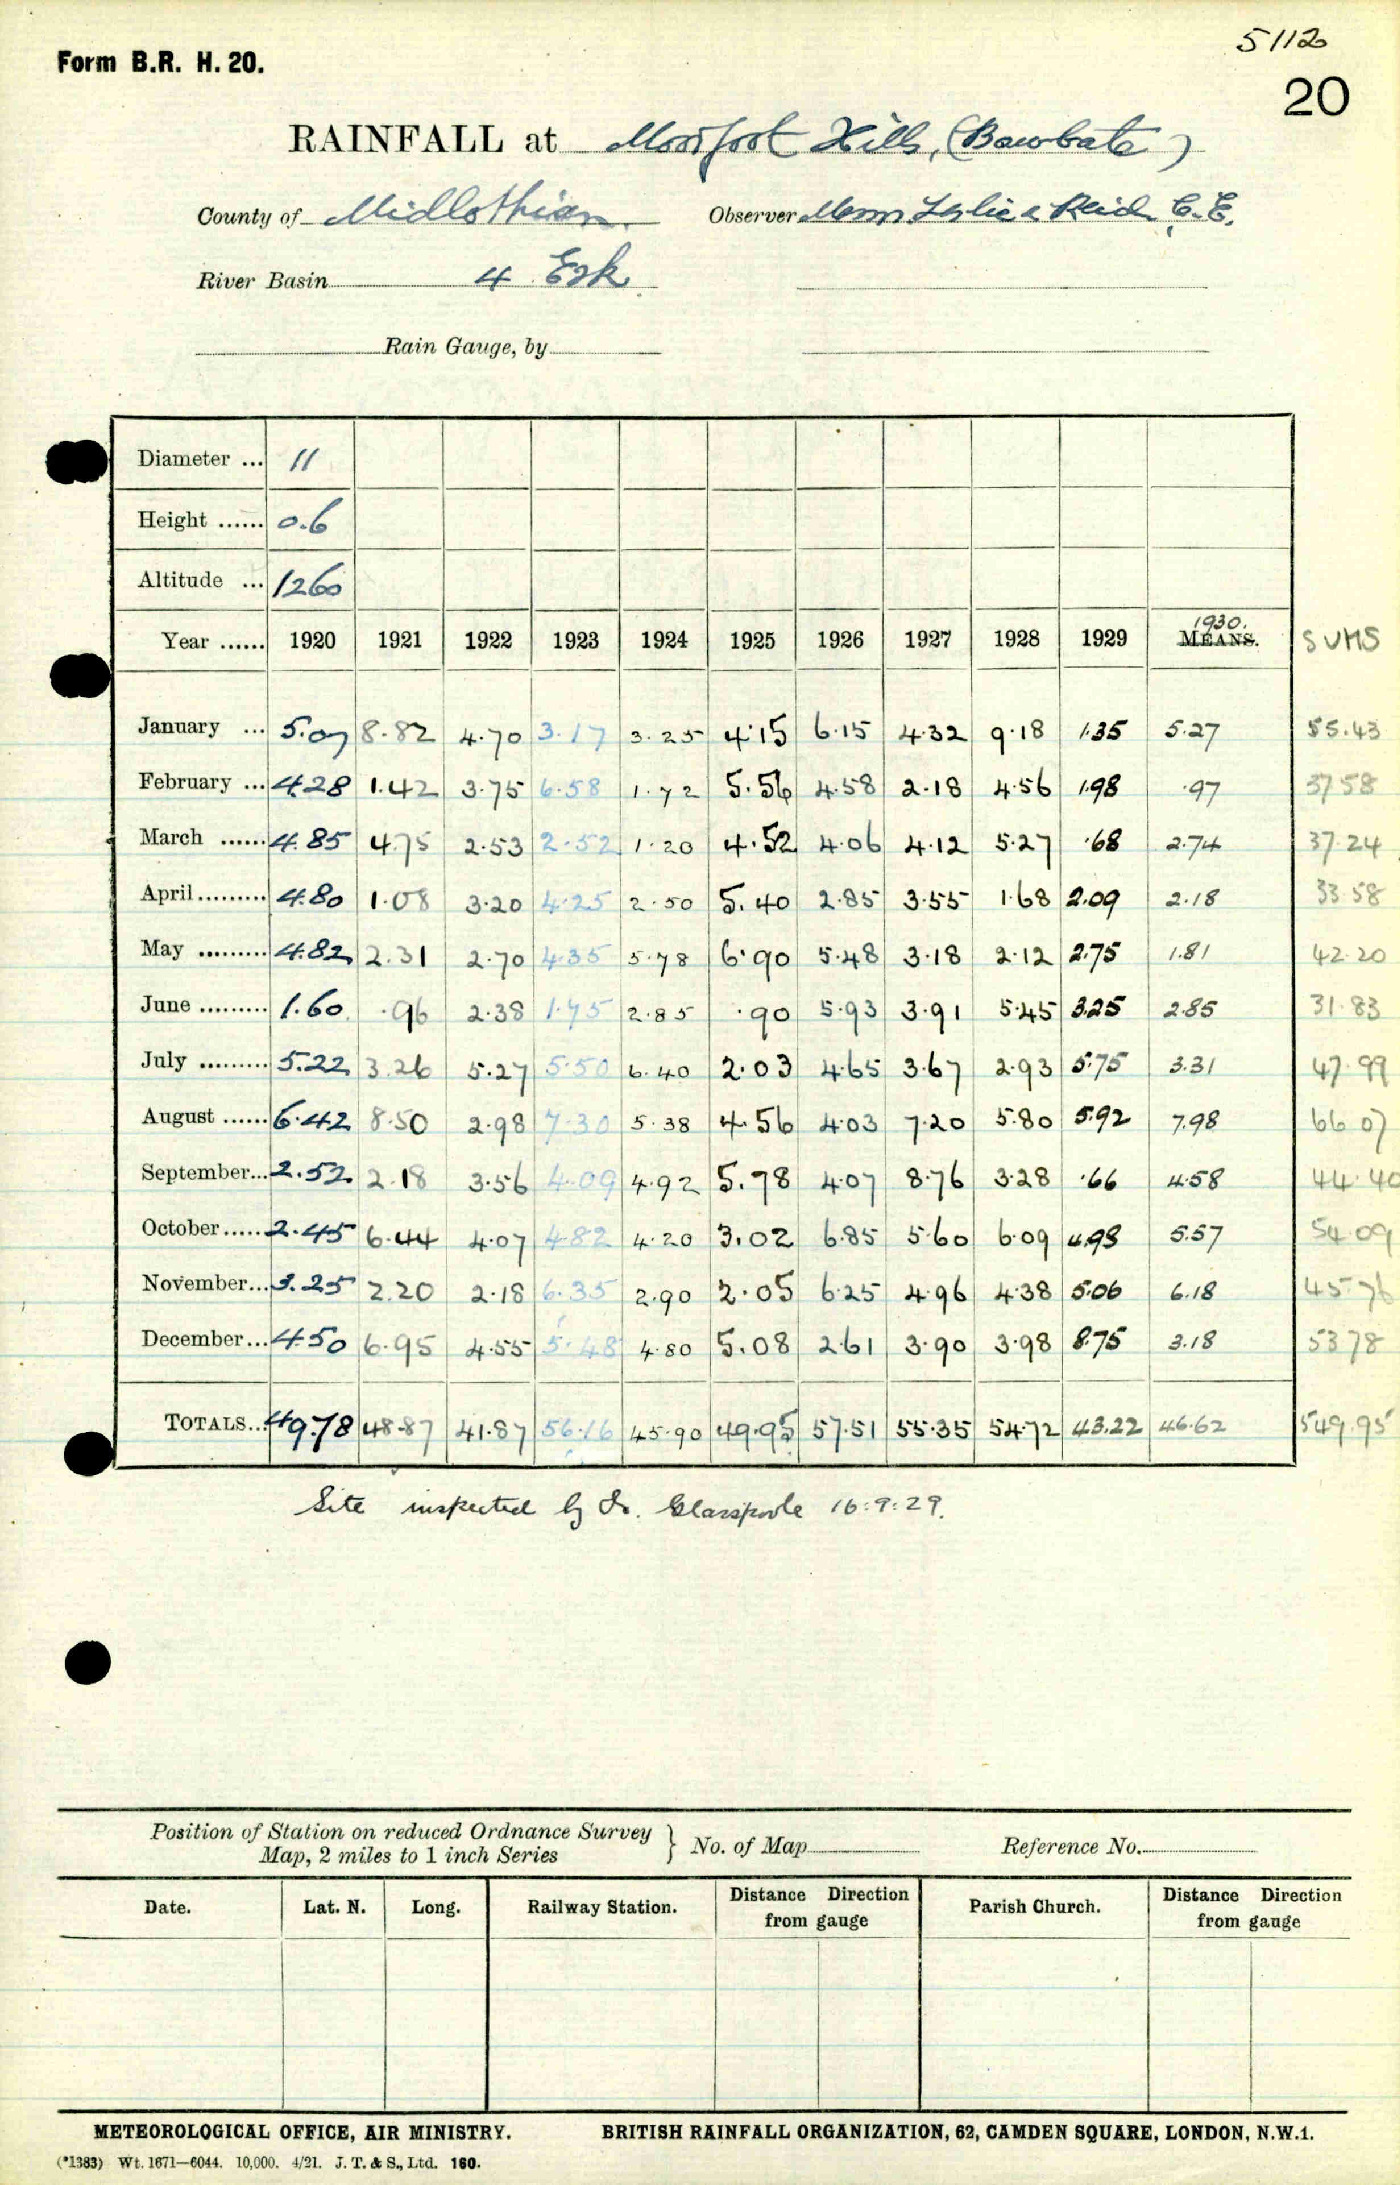 5112
Form B.R. H. 20.
20
RAINFALL at Moorfoot Hills, (Bowbate)
County of Midlothian. Observer Messrs Leslie & Reid, C.E.
River Basin 4 Esk
Rain Gauge, by
Diameter ... 11
Height ...... 0.6
Altitude ... 1260
1930.
Year ...... 1920 1921 1922 1923 1924 1925 1926 1927 1928 1929 MEANS. SUMS
January ... 5.07 8.82 4.70 3.17 3.25 4.15 6.15 4.32 9.18 1.35 5.27 55.43
February ... 4.28 1.42 3.75 6.58 1.72 5.56 4.58 2.18 4.56 1.98 .97 37 58
March ...... 4.85 4.75 2.53 2.52 1.20 4.52 4.06 4.12 5.27 .68 2.74 37.24
April ......... 4.80 1.08 3.20 4.25 2.50 5.40 2.85 3.55 1.68 2.09 2.18 33 58
May ......... 4.82 2.31 2.70 4.35 5.78 6.90 5.48 3.18 2.12 2.75 1.81 42.20
June ......... 1.60 .96 2.38 1.75 2.85 .90 5.93 3.91 5.45 3.25 2.85 31.83
July ......... 5.22 3.26 5.27 5.50 6.40 2.03 4.65 3.67 2.93 5.75 3.31 47.99
August ...... 6.42 8.50 2.98 7.30 5.38 4.56 4.03 7.20 5.80 5.92 7.98 66 07
September... 2.52 2.18 3.56 4.09 4.92 5.78 4.07 8.76 3.28 .66 4.58 44.40
October ...... 2.45 6.44 4.07 4.82 4.20 3.02 6.85 5.60 6.09 4.98 5.57 54.09
November... 3.25 2.20 2.18 6.35 2.90 2.05 6.25 4.96 4.38 5.06 6.18 45.76
December ... 4.50 6.95 4.55 5.48 4.80 5.08 2.61 3.90 3.98 8.75 3.18 53 78
TOTALS... 49.78 48.87 41.87 56.16 45.90 49.95 57.51 55.35 54.72 43.22 46.62 549.95
Site inspected by Dr. Glasspoole 16:9:29.
Position of Station on reduced Ordnance Survey
Map, 2 miles to 1 inch Series } No. of Map Reference No.
Date. Lat. N. Long. Railway Station. Distance Direction from gauge Parish Church. Distance Direction from gauge
METEOROLOGICAL OFFICE, AIR MINISTRY. BRITISH RAINFALL ORGANIZATION, 62, CAMDEN SQUARE, LONDON, N.W.1.
(*1383) Wt. 1671—6044. 10,000. 4/21. J. T. & S., Ltd. 160.